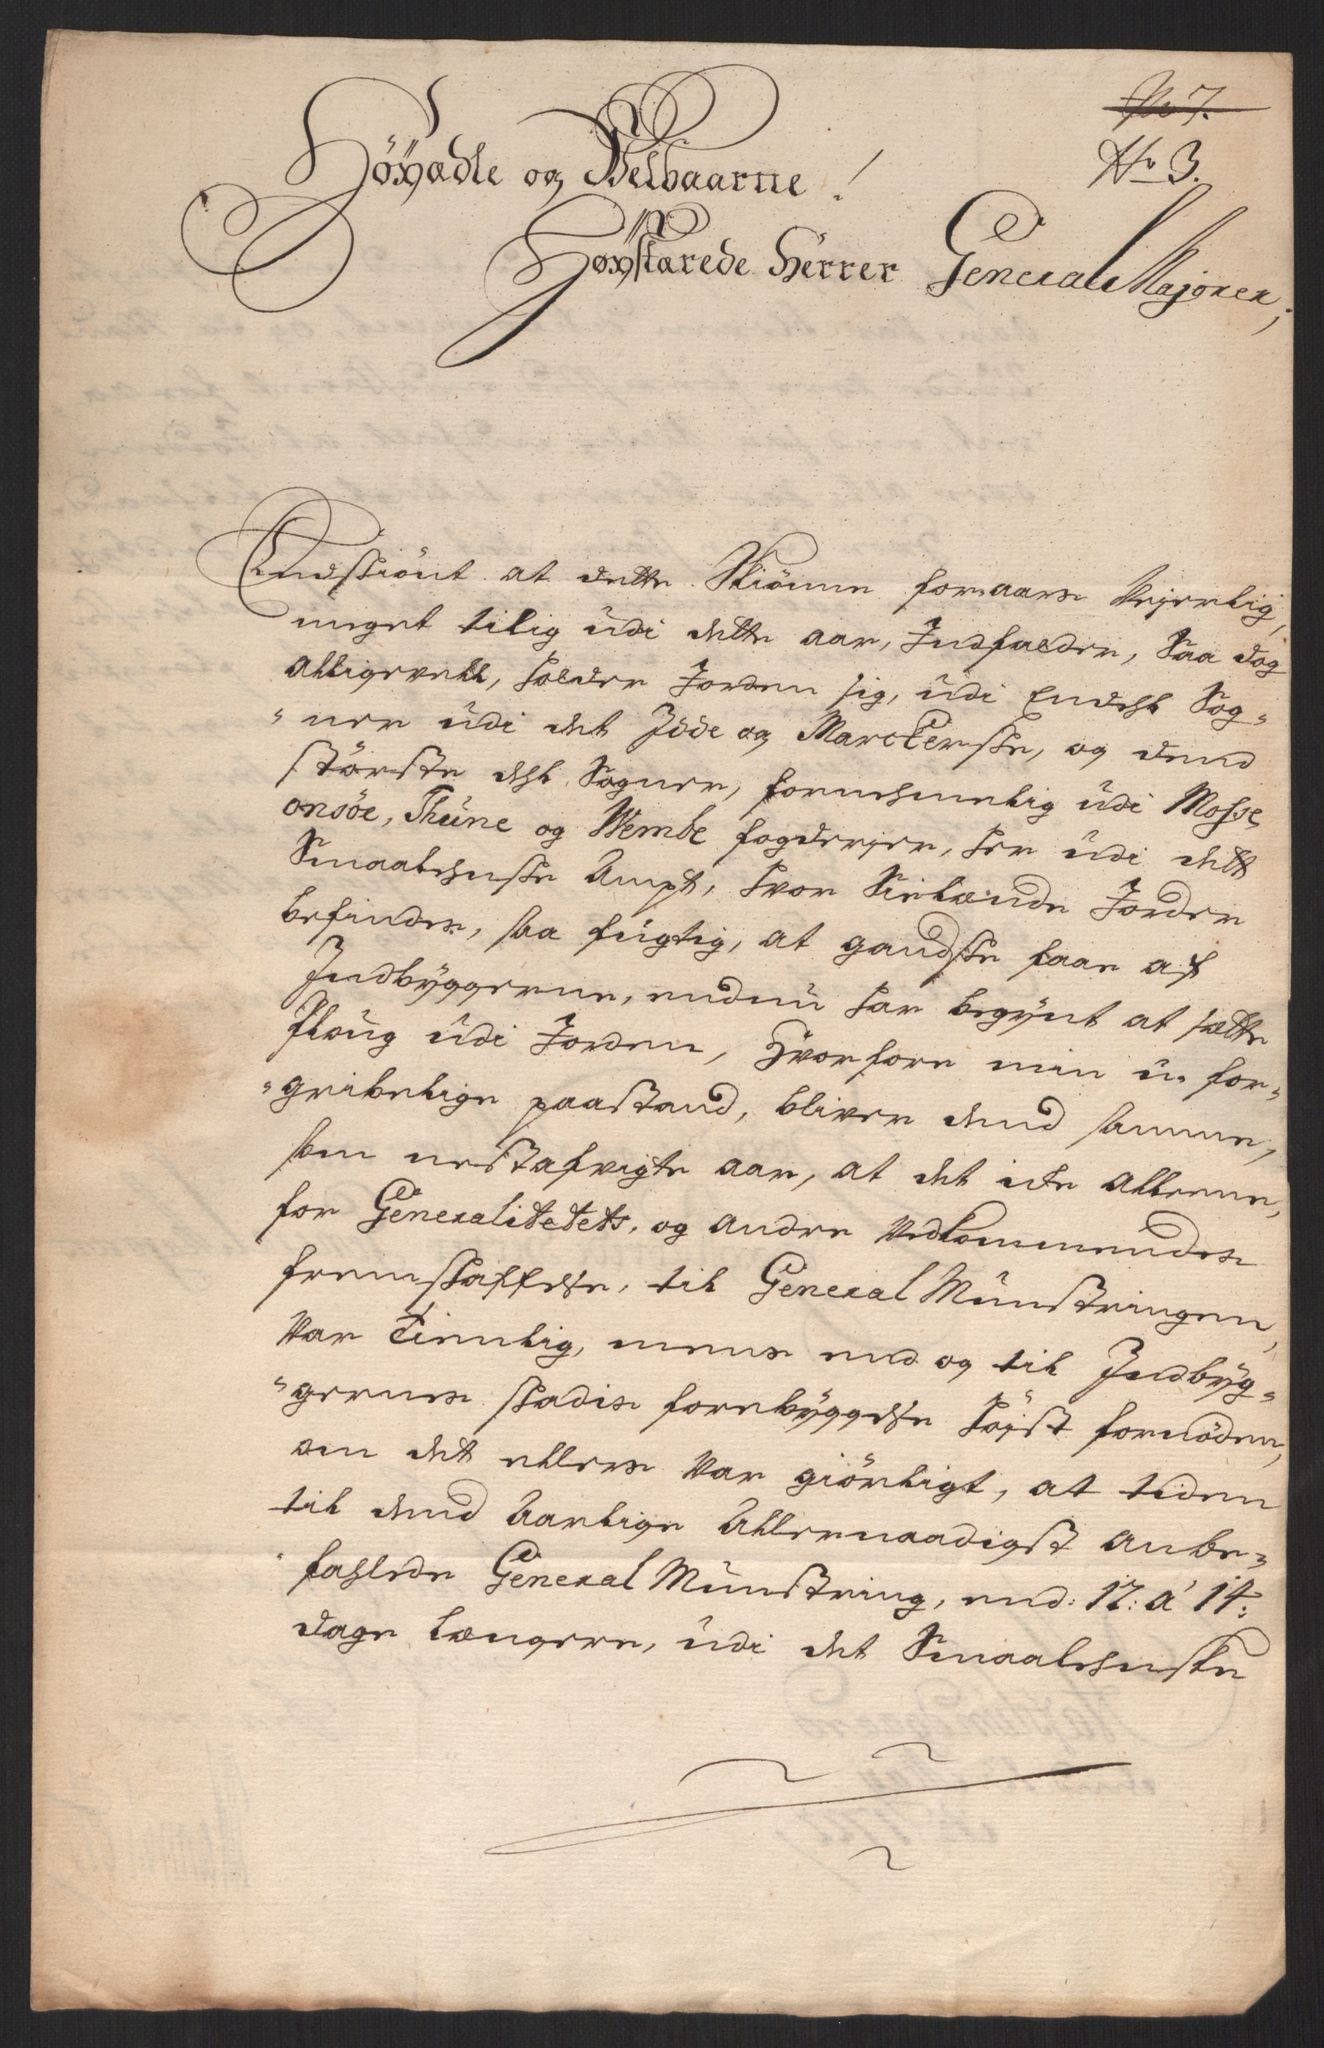 No 7.
No 3.
Höyædle og Velbaarne!
Høystærede Herrer General Majorer;
Endskiönt at dette Skiönne foraars Vejerlig,
meget tilig üdi dette aar, Indfalder, Saa dog
alligevell, holder Jorden sig, üdi Endehl Sog-
ner üdi det Jdde og Marckerske, og dend
störste dehl Sogner, fornehmelig üdi Mosse,
onsöe, Thüne og Wembe fogderier, her üdi dett
Smaalehnske Ampt, hvor Sielænde Jorder
befindes, saa fügtig, at gandske faae af
Indbÿggerne, endnü har begÿnt at sætte
Ploüg üdi Jorden, Hvorfore min ü-for-
gribelige paastand, bliver dend samme,
som nestafvigte aar, at det icke alleene,
for Generalitetets, og andre Vedkommendes
fremskaffelse, til General Münstringen,
Var tienlig, mens end og til Indbÿg-
gernes skades forebÿggelse höjst fornöden,
om det ellers Var giörligt, at tiden
til dend Aarlige Allernaadigst anbe-
fahlede General Münstring, end: 12: á 14:
dage længere, üdi det Smaalehnske